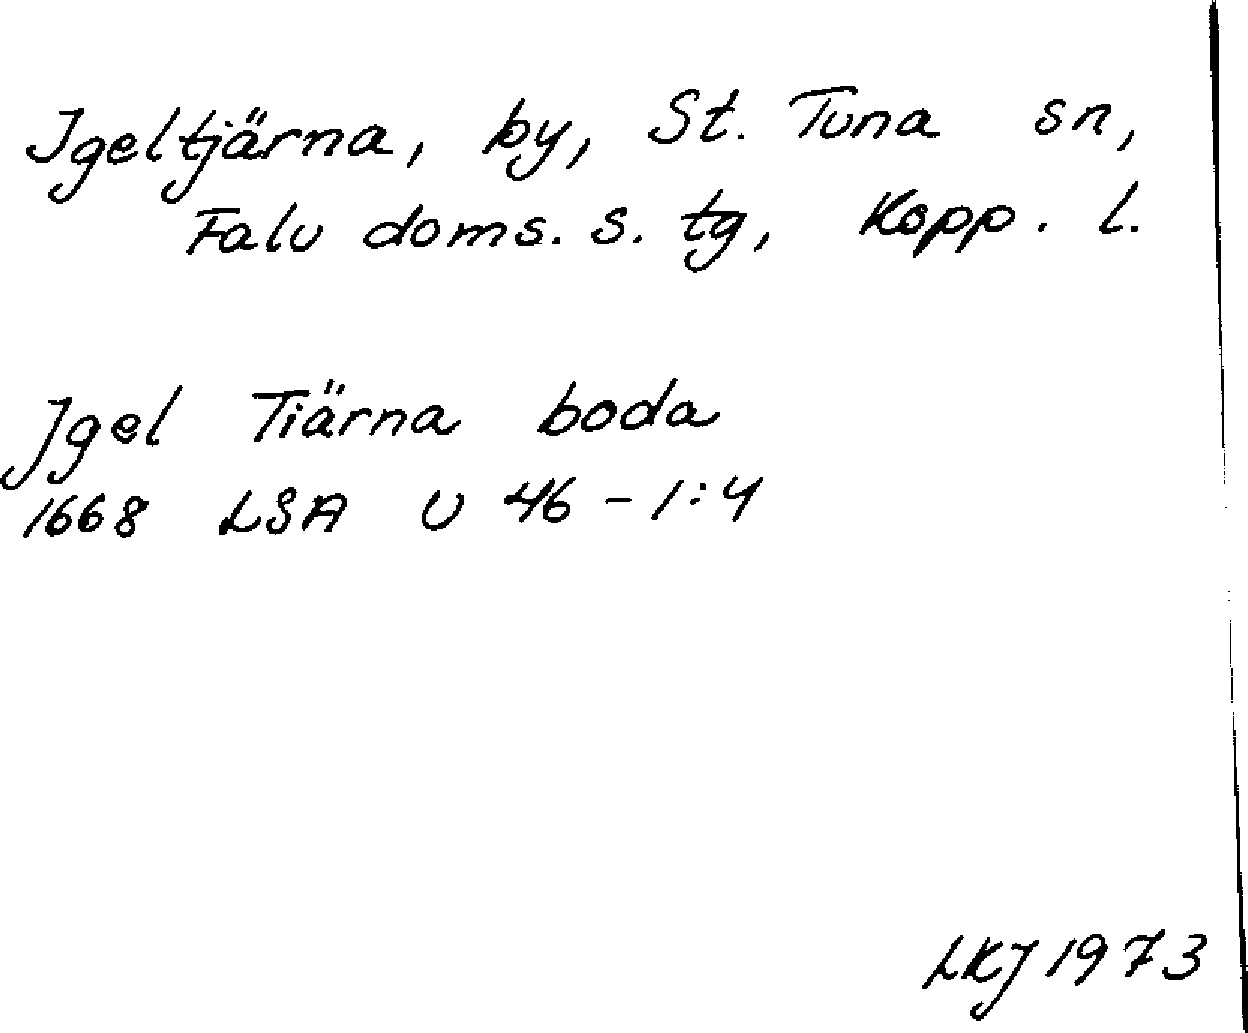 Igeltjärna, by, St. Tuna sn,
Falu doms. s. tg, Kopp. l.
Jgel Tiärna boda
1668 LSA U 46-1:4
LKJ 1973